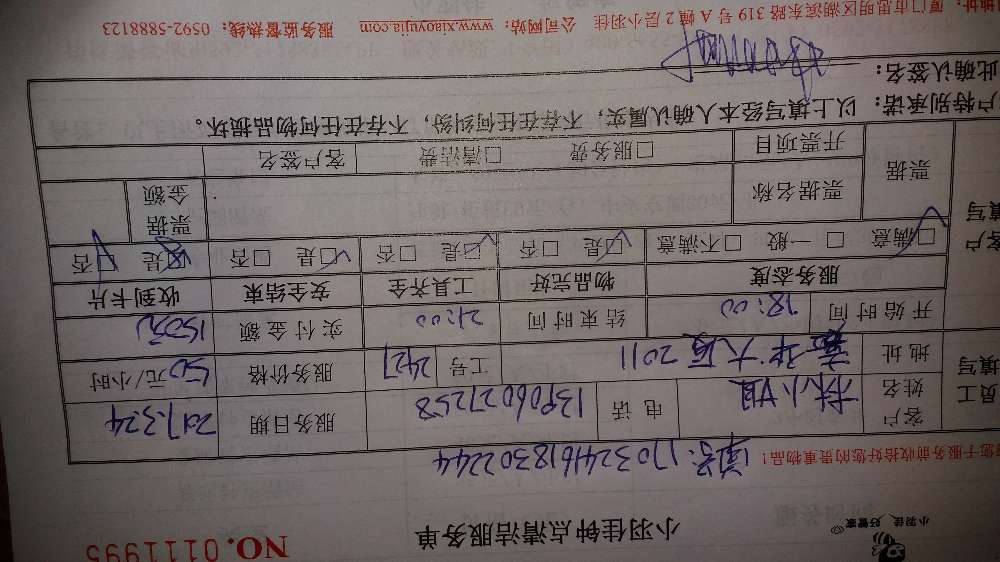 小羽佳 好管家
小羽佳钟点清洁服务单
NO.0111995
您于服务前收拾好您的贵重物品！
单号：1703244618302244
员工填写
客户姓名 林小姐 电话 13906027258 服务日期 2017.3.24
地址 嘉华大厦2011 工号 2427 服务价格 50元/小时
开始时间 18:00 结束时间 21:00 实付金额 150元
客户填写
服务态度 物品完好 工具齐全 安全结束 收到卡片
满意 一般 不满意 是 否 是 否 是 否 是 否
票据 票据名称 票据金额
开票项目 服务费 清洁费 客户签名
户特别承诺：以上填写经本人确认属实，不存在任何纠纷，不存在任何物品损坏。
此确认签名：
地址：厦门市思明区湖滨东路319号A幢2层小羽佳 公司网站：www.xiaoyujia.com 服务监督热线：0592-5888123